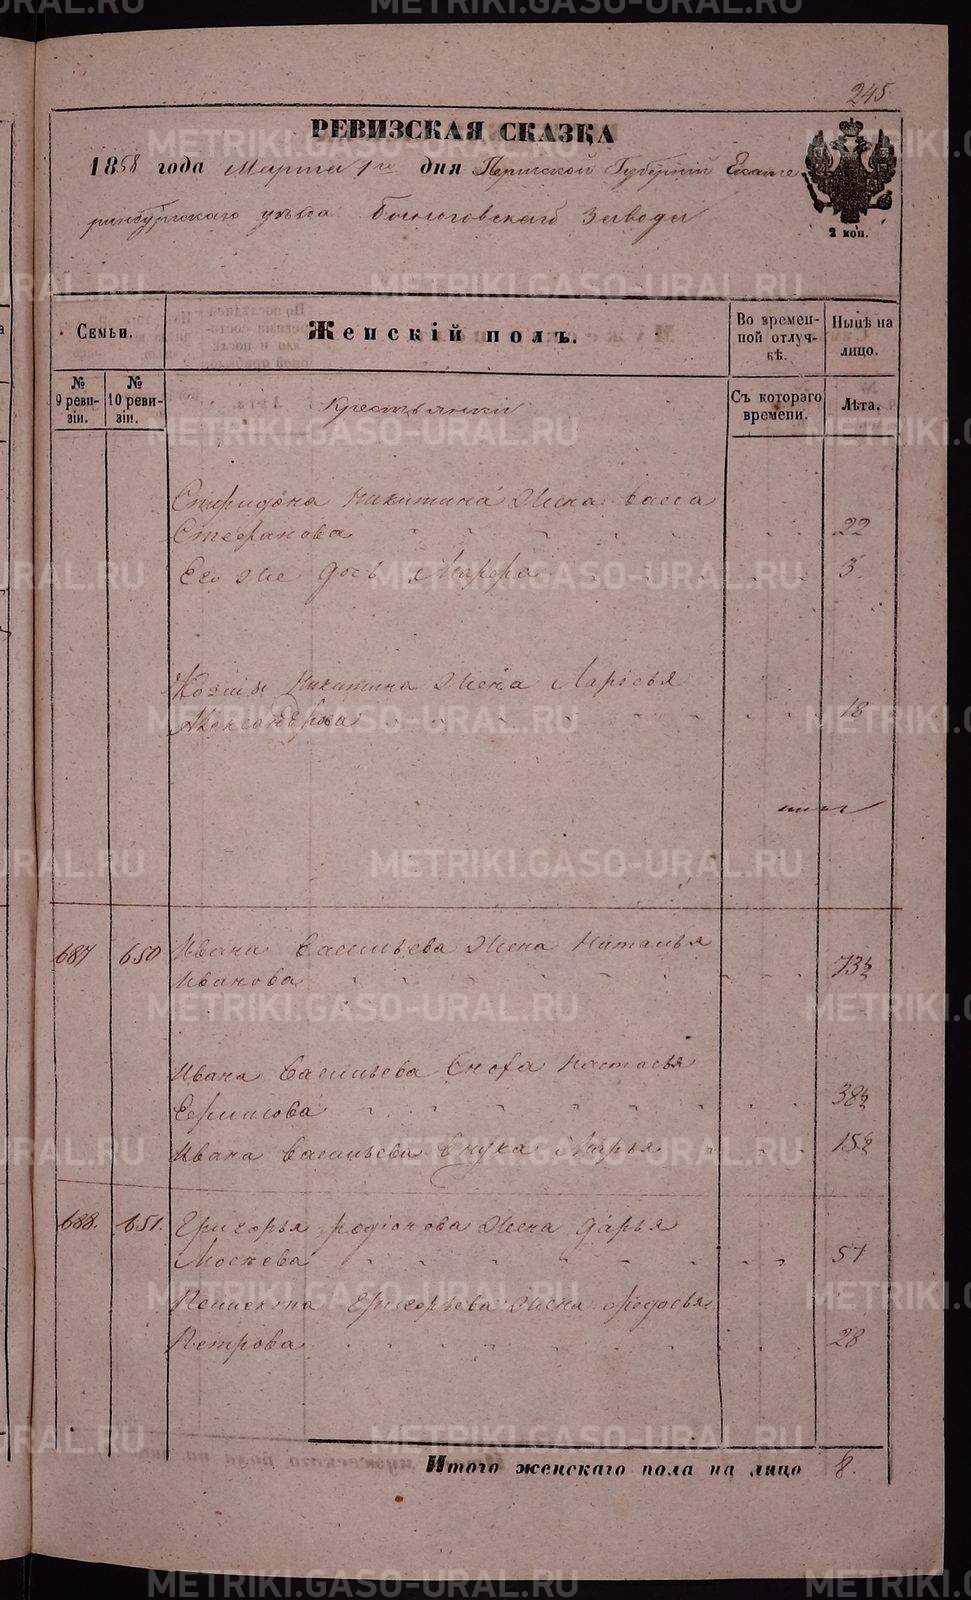 245
РЕВИЗСКАЯ СКАЗКА
1858 года Марта 1го дня Пермской Губернии Екате
ринбургского уезда Завода
2 коп.
Семьи.
Женскій полъ.
Во времен-
ной отлуч-
кѣ.
Нынѣ на
лицо.
№
9 реви-
зіи.
№
10 реви-
зіи.
Съ котораго
времени.
Лѣта.
Крестьянки
Спиридона Никитина жена Васса
Стефанова 22
Его же дочь Марфа 3
Козмы Никитина жена
Александрова 18
687 650 Ивана Васильева жена Наталья
Иванова 73½
Ивана Васильева Сноха Настасья
Ермилова 38½
Ивана Васильева Внука Марья 15½
688. 651. Григорья Родіонова жена Дарья
Мосеева 57
Григорьева жена Федосья
Петрова 28
Итого женскаго пола на лицо 8.
METRIKI.GASO-URAL.RU